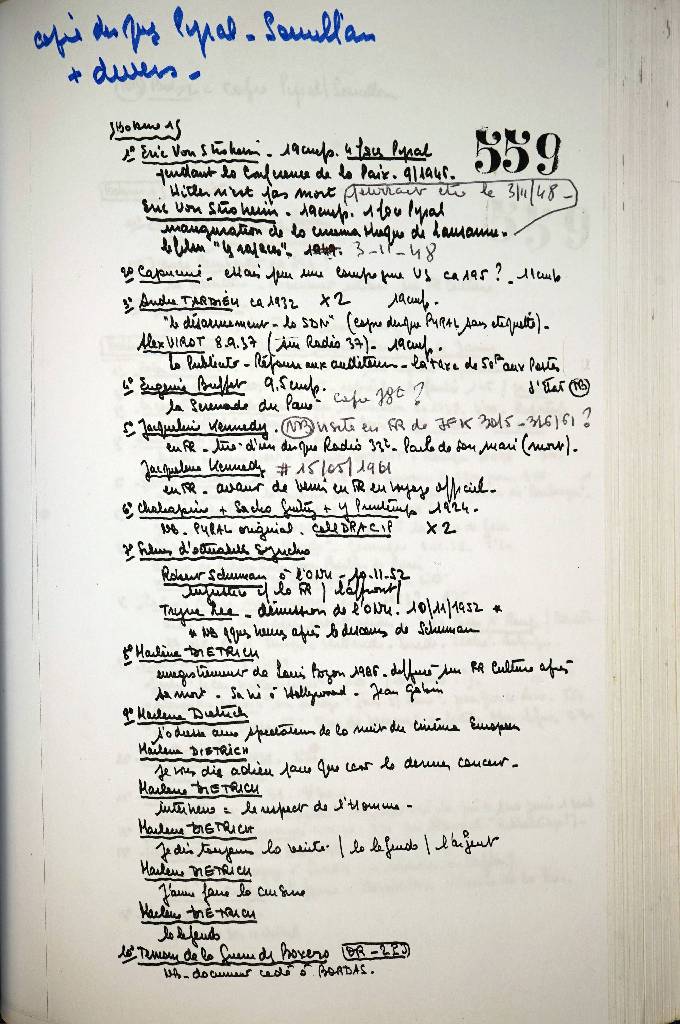 copie disques Pyral - Samullan
+ divers -
559
1° Eric Von Stroheim - 19cm/s. 4 faces Pyral
pendant la Conférence de la Paix - 9/1946.
Hitler n'est pas mort pourrait être le 3/11/48 -
Eric Von Stroheim - 19cm/s. 1 face Pyral
inauguration de la cinémathèque de Lausanne.
le film "les rapaces". 3-11-48
2° . mais pour une campagne US ca 195 ? - 11cm/s
3° André TARDIEU ca 1932 x2 19cm/s.
"le désarmement - la SDN" (copie disque PYRAL sans étiquette).
Alex VIROT 8.9.37 (sur Radio 37) - 19cm/s.
la Publicité - Réponse aux auditeurs - la taxe de 50 aux Postes
d'Etat NB
4° Eugénie Buffet 9.5cm/s.
la Sérénade du Pavé - copie 78t ?
5° Jacqueline Kennedy. NB visite en FR de JFK 30/5 - 3/6/61 ?
en FR - tiré d'un disque Radio 33t - Parle de son mari (mort).
Jacqueline Kennedy # 15/05/1961
en FR - avant de venir en FR en voyage officiel.
6° Chaliapine + Sacha Guitry + Y Printemps 1924.
NB. PYRAL original. x2
7° Films d'actualités
Robert Schuman à l'ONU - 10.11.52
injustice c/ la FR / l'affront /
Trygve Lee - démission de l'ONU. 10/11/1952 *
* NB qques heures après le discours de Schuman
8° Marlène DIETRICH
enregistrement de Louis Bozon 1986. diffusé sur FR Culture après
sa mort - Sa vie à Hollywood - Jean Gabin
9° Marlene Dietrich
s'adresse aux spectateurs de la nuit du cinéma Européen
Marlene DIETRICH
je vous dis adieu parce que c'est le dernier concert -
Marlene DIETRICH
interview = le respect de l'Homme -
Marlene DIETRICH
Je dis toujours la vérité / la légende / l'argent
Marlene DIETRICH
J'aime faire la cuisine
Marlene DIETRICH
la légende
10° Témoin de la Guerre des Boxers
NB - document cédé à BORDAS.